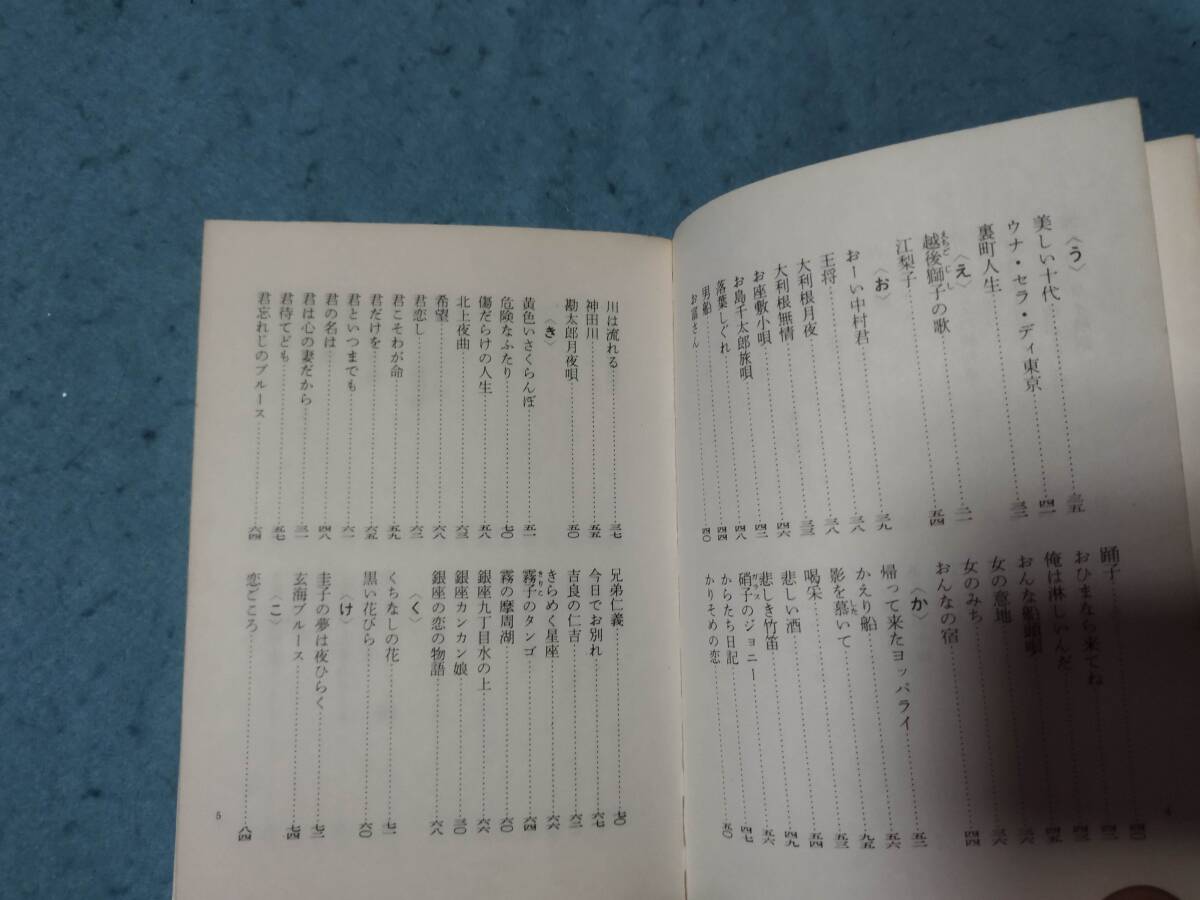 〈う〉
美しい十代……三五
ウナ・セラ・ディ東京……四一
裏町人生……三二
〈え〉
越後獅子の歌……二一
江梨子……五四
〈お〉
おーい中村君……三九
王将……三八
大利根月夜……三八
大利根無情……三三
お座敷小唄……四六
お島千太郎旅唄……四二
落葉しぐれ……四八
男船……四四
お富さん……四〇
踊子
おひまなら来てね
俺は淋しいんだ
おんな船頭唄
女の意地
女のみち
おんなの宿
〈か〉
帰って来たヨッパライ……五二
かえり船……五六
影を慕いて……九五
喝采……五三
悲しい酒……五四
悲しき竹笛……四九
硝子のジョニー……五六
からたち日記……四七
かりそめの恋……五〇
4
川は流れる……三七
神田川……五五
勘太郎月夜唄……五〇
〈き〉
黄色いさくらんぼ……五一
危険なふたり……七〇
傷だらけの人生……五八
北上夜曲……六三
希望……六八
君恋し……六三
君こそわが命……五九
君だけを……六五
君といつまでも……六一
君の名は……四八
君は心の妻だから……三一
君待てども……五七
君忘れじのブルース……六四
兄弟仁義……七〇
今日でお別れ……六七
吉良の仁吉……六二
きらめく星座……六六
霧子のタンゴ……六四
霧の摩周湖……六〇
銀座九丁目水の上……六六
銀座カンカン娘……三〇
銀座の恋の物語……六八
〈く〉
くちなしの花……七一
黒い花びら……六〇
〈け〉
圭子の夢は夜ひらく……七二
玄海ブルース……七四
〈こ〉
恋ごころ……八四
5